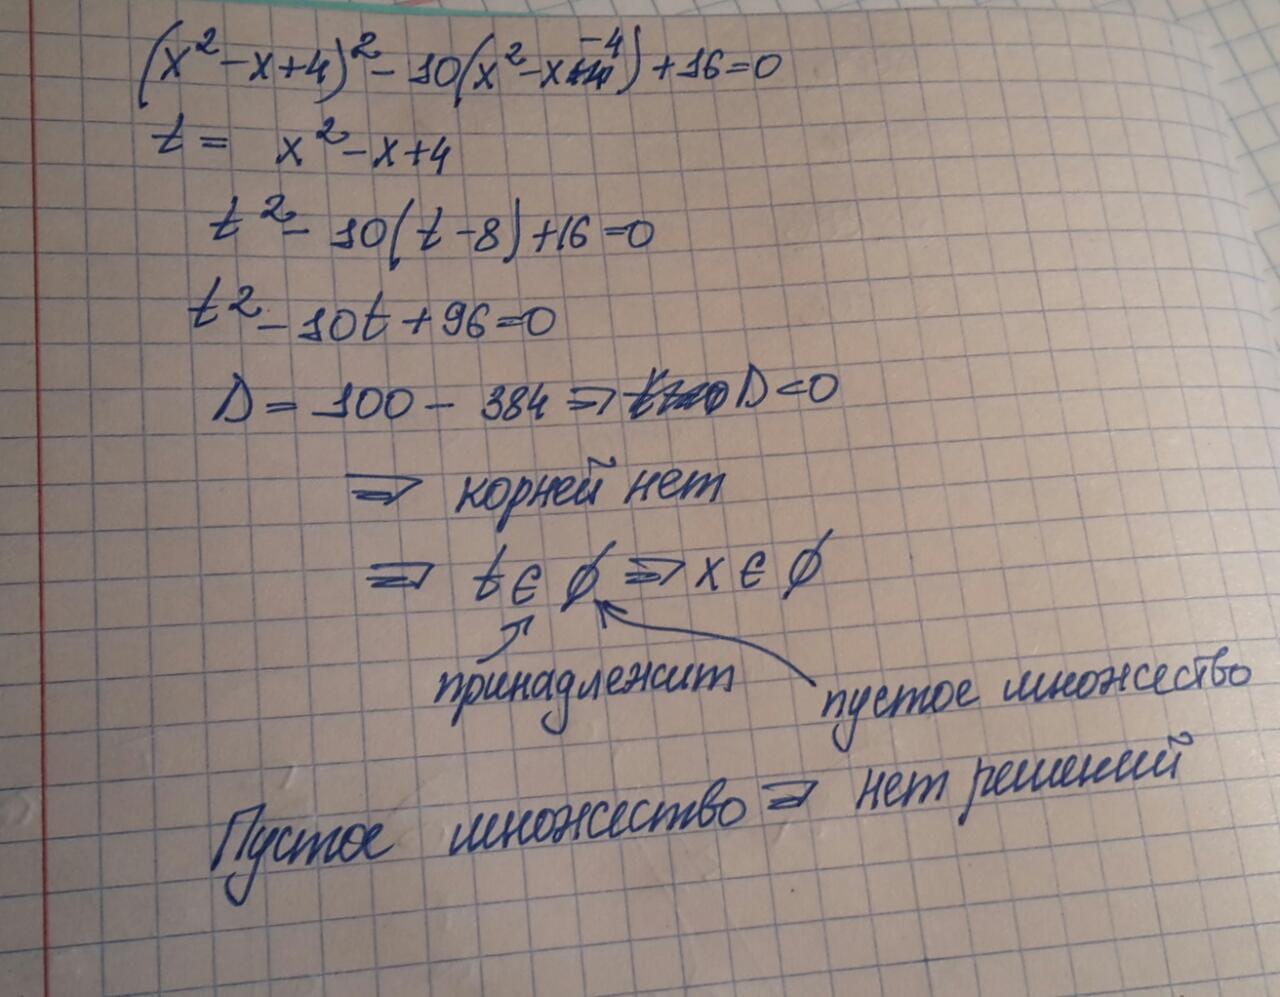 (x² - x + 4)² - 10(x² - x - 4) + 16 = 0
t = x² - x + 4
t² - 10(t - 8) + 16 = 0
t² - 10t + 96 = 0
D = 100 - 384 ⇒ D < 0
⇒ корней нет
⇒ t ∈ ∅ ⇒ x ∈ ∅
принадлежит
пустое множество
Пустое множество ⇒ нет решений